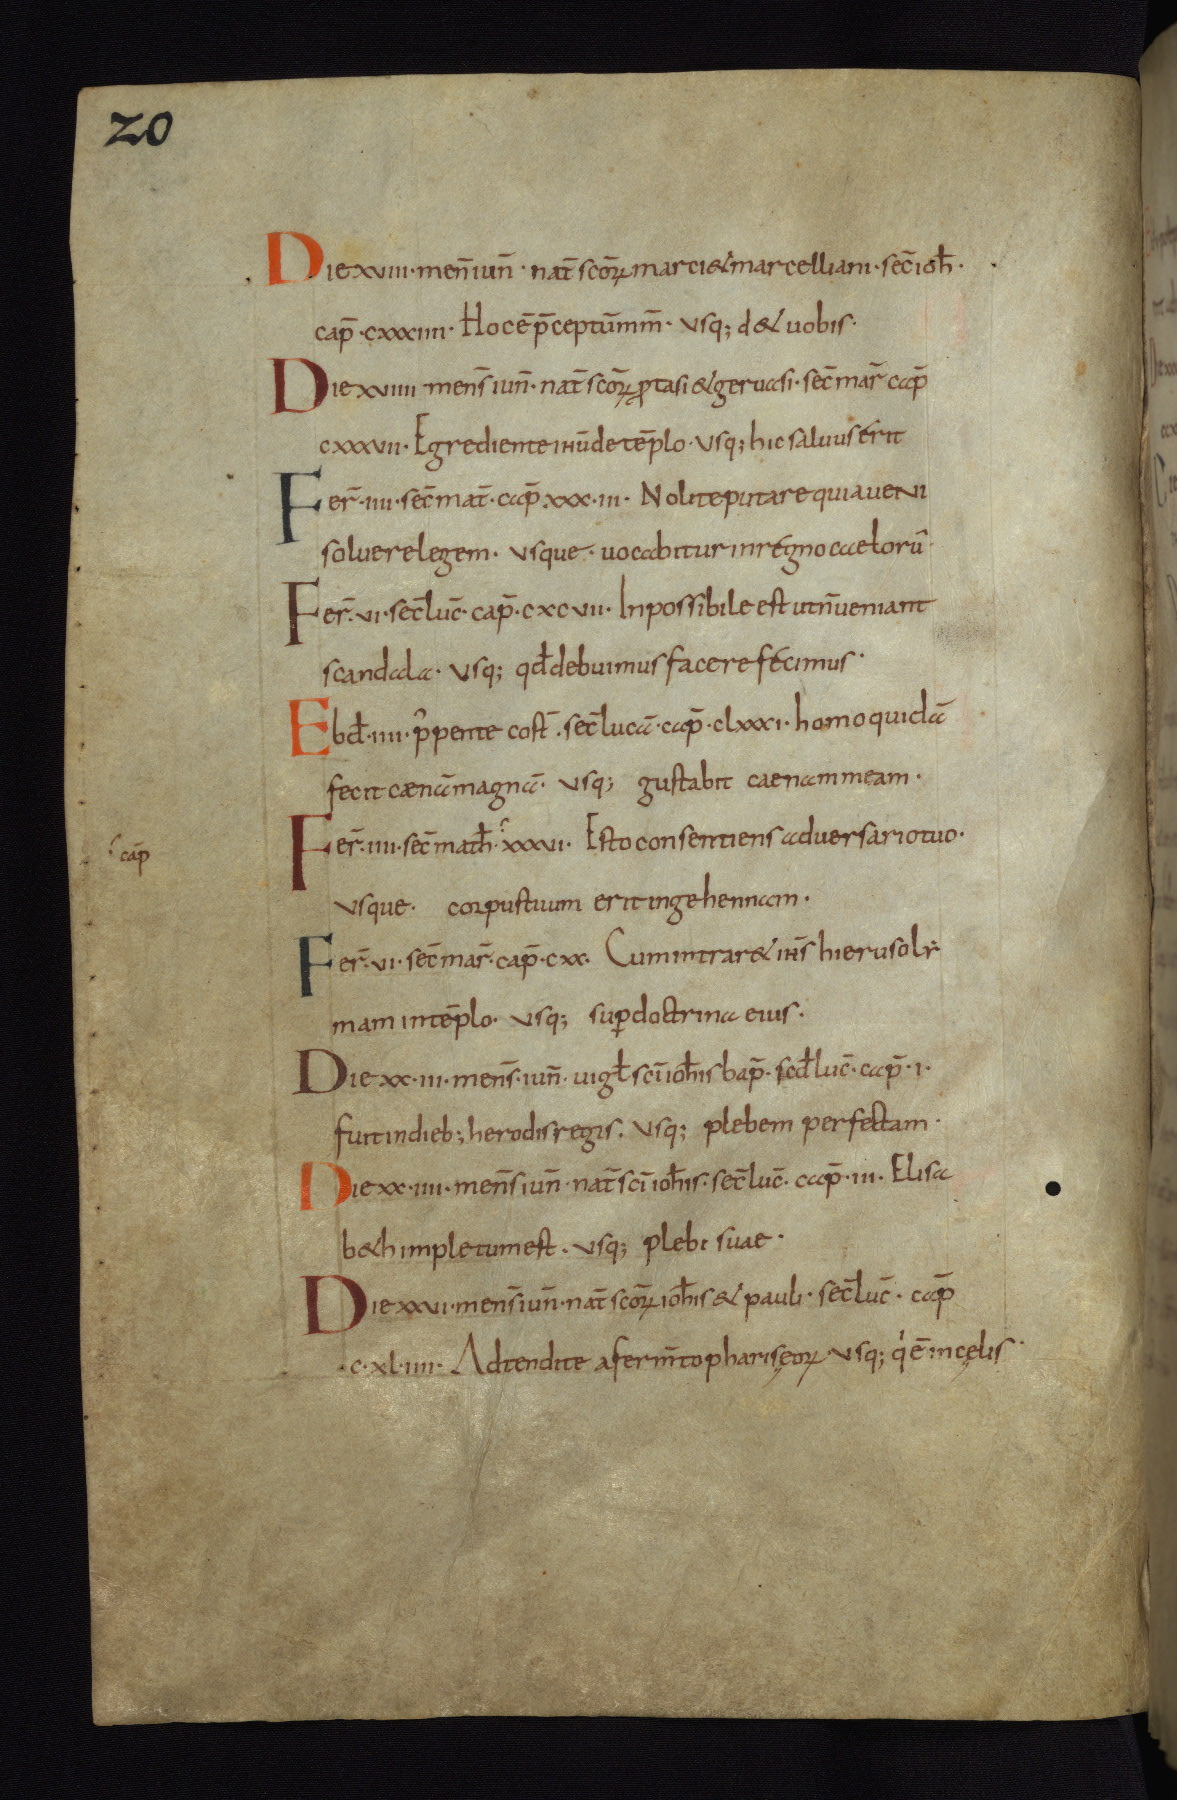 20
Die xviii · men̄ iun̄ · nat̄ scōrꝝ marci & marcelliani · sec̄ ioh̄ ·
cap̄ · cxxxiiii · Hoc ē p̄ceptūm m̄ · usq; d&uobis ·
Die xviiii mens̄ iun̄ · nat̄ scōrꝝ ꝓtasi & geruasi · sec̄ mar̄ cap̄
cxxxvii · Egrediente ihū de tēplo · usq; hic saluus erit
Fer̄ · iiii · sec̄ mat̄ · cap̄ · xxx · iii · Nolite putare quia ueni
soluere legem · usque · uocabitur in regno caelorū ·
Fer̄ · vi · sec̄ luc̄ · cap̄ · cxcvii · Inpossibile est ut n̄ ueniant
scandala · usq; qd̄ debuimus facere fecimus ·
Ebd̄ · iiii · p̄ pente cost̄ · sec̄ lucā · cap̄ · clxxxi · homo quidā
fecit cænā magnā · usq; gustabit caenam meam ·
Fer̄ · iiii · sec̄ math̄ · xxxvi · Esto consentiens aduersario tuo ·
cap̄
usque · corpus tuum erit in gehennam ·
Fer̄ · vi · sec̄ mar̄ · cap̄ · cxx · Cum intrar& ihs̄ hierusoly
mam in tēplo · usq; suꝑ doctrina eius ·
Die xx · iii · mens̄ · iun̄ · uigl̄ sc̄i ioh̄is bap̄ · scd̄ luc̄ · cap̄ · i ·
fuit in dieb; herodis regis · usq; plebem perfectam ·
Die xx · iiii · mens̄ iun̄ · nat̄ sc̄i ioh̄is · sec̄ luc̄ · cap̄ · iii · Elisa
b&h impletum est · usq; plebi suae ·
Die xxvi · mens̄ iun̄ · nat̄ scōrꝝ ioh̄is & pauli · sec̄ luc̄ · cap̄
· c · xl · iiii · Adtendite a ferm̄to pharisęorꝝ · usq; q̇ ē in cęlis ·